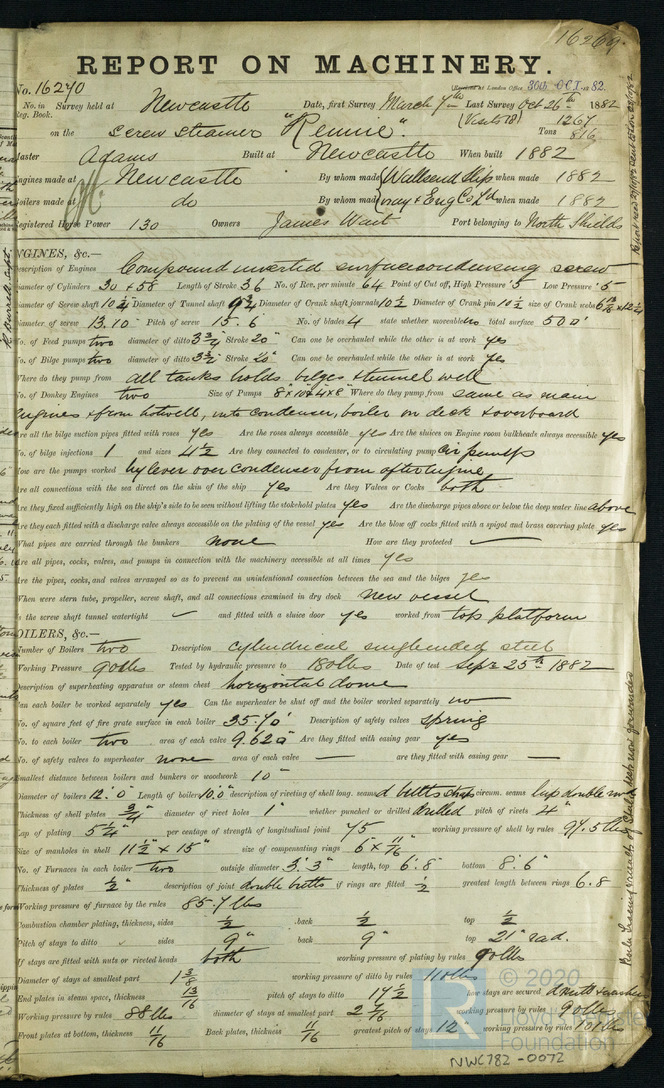 16269.
REPORT ON MACHINERY.
No. 16270 Received at London Office 30th OCT. 82.
No. in Survey held at Newcastle Date, first Survey March 7th Last Survey Oct 26th 1882
Reg. Book. (Visits 18) 1267
on the Screw Steamer "Rennie". Tons 816
Master Adams Built at Newcastle When built 1882
Engines made at Newcastle By whom made Wallsend Slip when made 1882
Boilers made at do By whom made way & Eng Co Ld when made 1882
Registered Horse Power 130 Owners James Wait Port belonging to North Shields
ENGINES, &c.—
Description of Engines Compound inverted surface condensing screw
Diameter of Cylinders 30 + 58 Length of Stroke 36 No. of Rev. per minute 64 Point of Cut off, High Pressure .5 Low Pressure .5
Diameter of Screw shaft 10 3/4 Diameter of Tunnel shaft 9 3/4 Diameter of Crank shaft journals 10 1/2 Diameter of Crank pin 10 1/2 size of Crank webs
Diameter of screw 13.10 Pitch of screw 15.6 No. of blades 4 state whether moveable no total surface 50 □'
No. of Feed pumps two diameter of ditto 3 3/4 Stroke 20" Can one be overhauled while the other is at work yes
No. of Bilge pumps two diameter of ditto 3 3/4 Stroke 20" Can one be overhauled while the other is at work yes
Where do they pump from all tanks holds bilges & tunnel well
No. of Donkey Engines two Size of Pumps Where do they pump from same as main
Engines & from hotwell, into condenser, boiler on deck & overboard
Are all the bilge suction pipes fitted with roses yes Are the roses always accessible yes Are the sluices on Engine room bulkheads always accessible yes
No. of bilge injections 1 and sizes 4 1/2 Are they connected to condenser, or to circulating pump air pumps
How are the pumps worked by lever over condenser from after engine
Are all connections with the sea direct on the skin of the ship yes Are they Valves or Cocks both
Are they fixed sufficiently high on the ship's side to be seen without lifting the stokehold plates yes Are the discharge pipes above or below the deep water line above
Are they each fitted with a discharge valve always accessible on the plating of the vessel yes Are the blow off cocks fitted with a spigot and brass covering plate yes
What pipes are carried through the bunkers none How are they protected —
Are all pipes, cocks, valves, and pumps in connection with the machinery accessible at all times yes
Are the pipes, cocks, and valves arranged so as to prevent an unintentional connection between the sea and the bilges yes
When were stern tube, propeller, screw shaft, and all connections examined in dry dock new vessel
Is the screw shaft tunnel watertight ✓ and fitted with a sluice door yes worked from top platform
BOILERS, &c.—
Number of Boilers two Description cylindrical single ended steel
Working Pressure 90 lbs Tested by hydraulic pressure to 180 lbs Date of test Sept 25th 1882
Description of superheating apparatus or steam chest horizontal dome
Can each boiler be worked separately yes Can the superheater be shut off and the boiler worked separately no
No. of square feet of fire grate surface in each boiler 35.70' Description of safety valves spring
No. to each boiler two area of each valve 9.62□" Are they fitted with easing gear yes
No. of safety valves to superheater none area of each valve — are they fitted with easing gear —
Smallest distance between boilers and bunkers or woodwork 10"
Diameter of boilers 12'.0" Length of boilers 10'.0" description of riveting of shell long. seams d butt straps circum. seams lap double
Thickness of shell plates 3/4" diameter of rivet holes 1" whether punched or drilled drilled pitch of rivets 4"
Lap of plating 5 1/4" per centage of strength of longitudinal joint 75 working pressure of shell by rules 97.5 lbs
Size of manholes in shell 11 1/2" × 15" size of compensating rings 6" × 11/16"
No. of Furnaces in each boiler two outside diameter 3'.3" length, top 6'.8" bottom 8'.6"
Thickness of plates 1/2" description of joint double butts if rings are fitted 1/2 greatest length between rings 6.8
Working pressure of furnace by the rules 85.7 lbs
Combustion chamber plating, thickness, sides 1/2 back 1/2 top 1/2
Pitch of stays to ditto sides 9" back 9" top 21" rad.
If stays are fitted with nuts or riveted heads both working pressure of plating by rules 90 lbs
Diameter of stays at smallest part 1 3/8 working pressure of ditto by rules 110 lbs
End plates in steam space, thickness 13/16 pitch of stays to ditto 17 1/2 how stays are secured d nuts & washers
Working pressure by rules 88 lbs diameter of stays at smallest part 2 7/16 working pressure by rules 90 lbs
Front plates at bottom, thickness 11/16 Back plates, thickness 11/16 greatest pitch of stays 12 working pressure by rules 101 lbs
© 2020
Lloyd's Register
Foundation
NWC782-0072